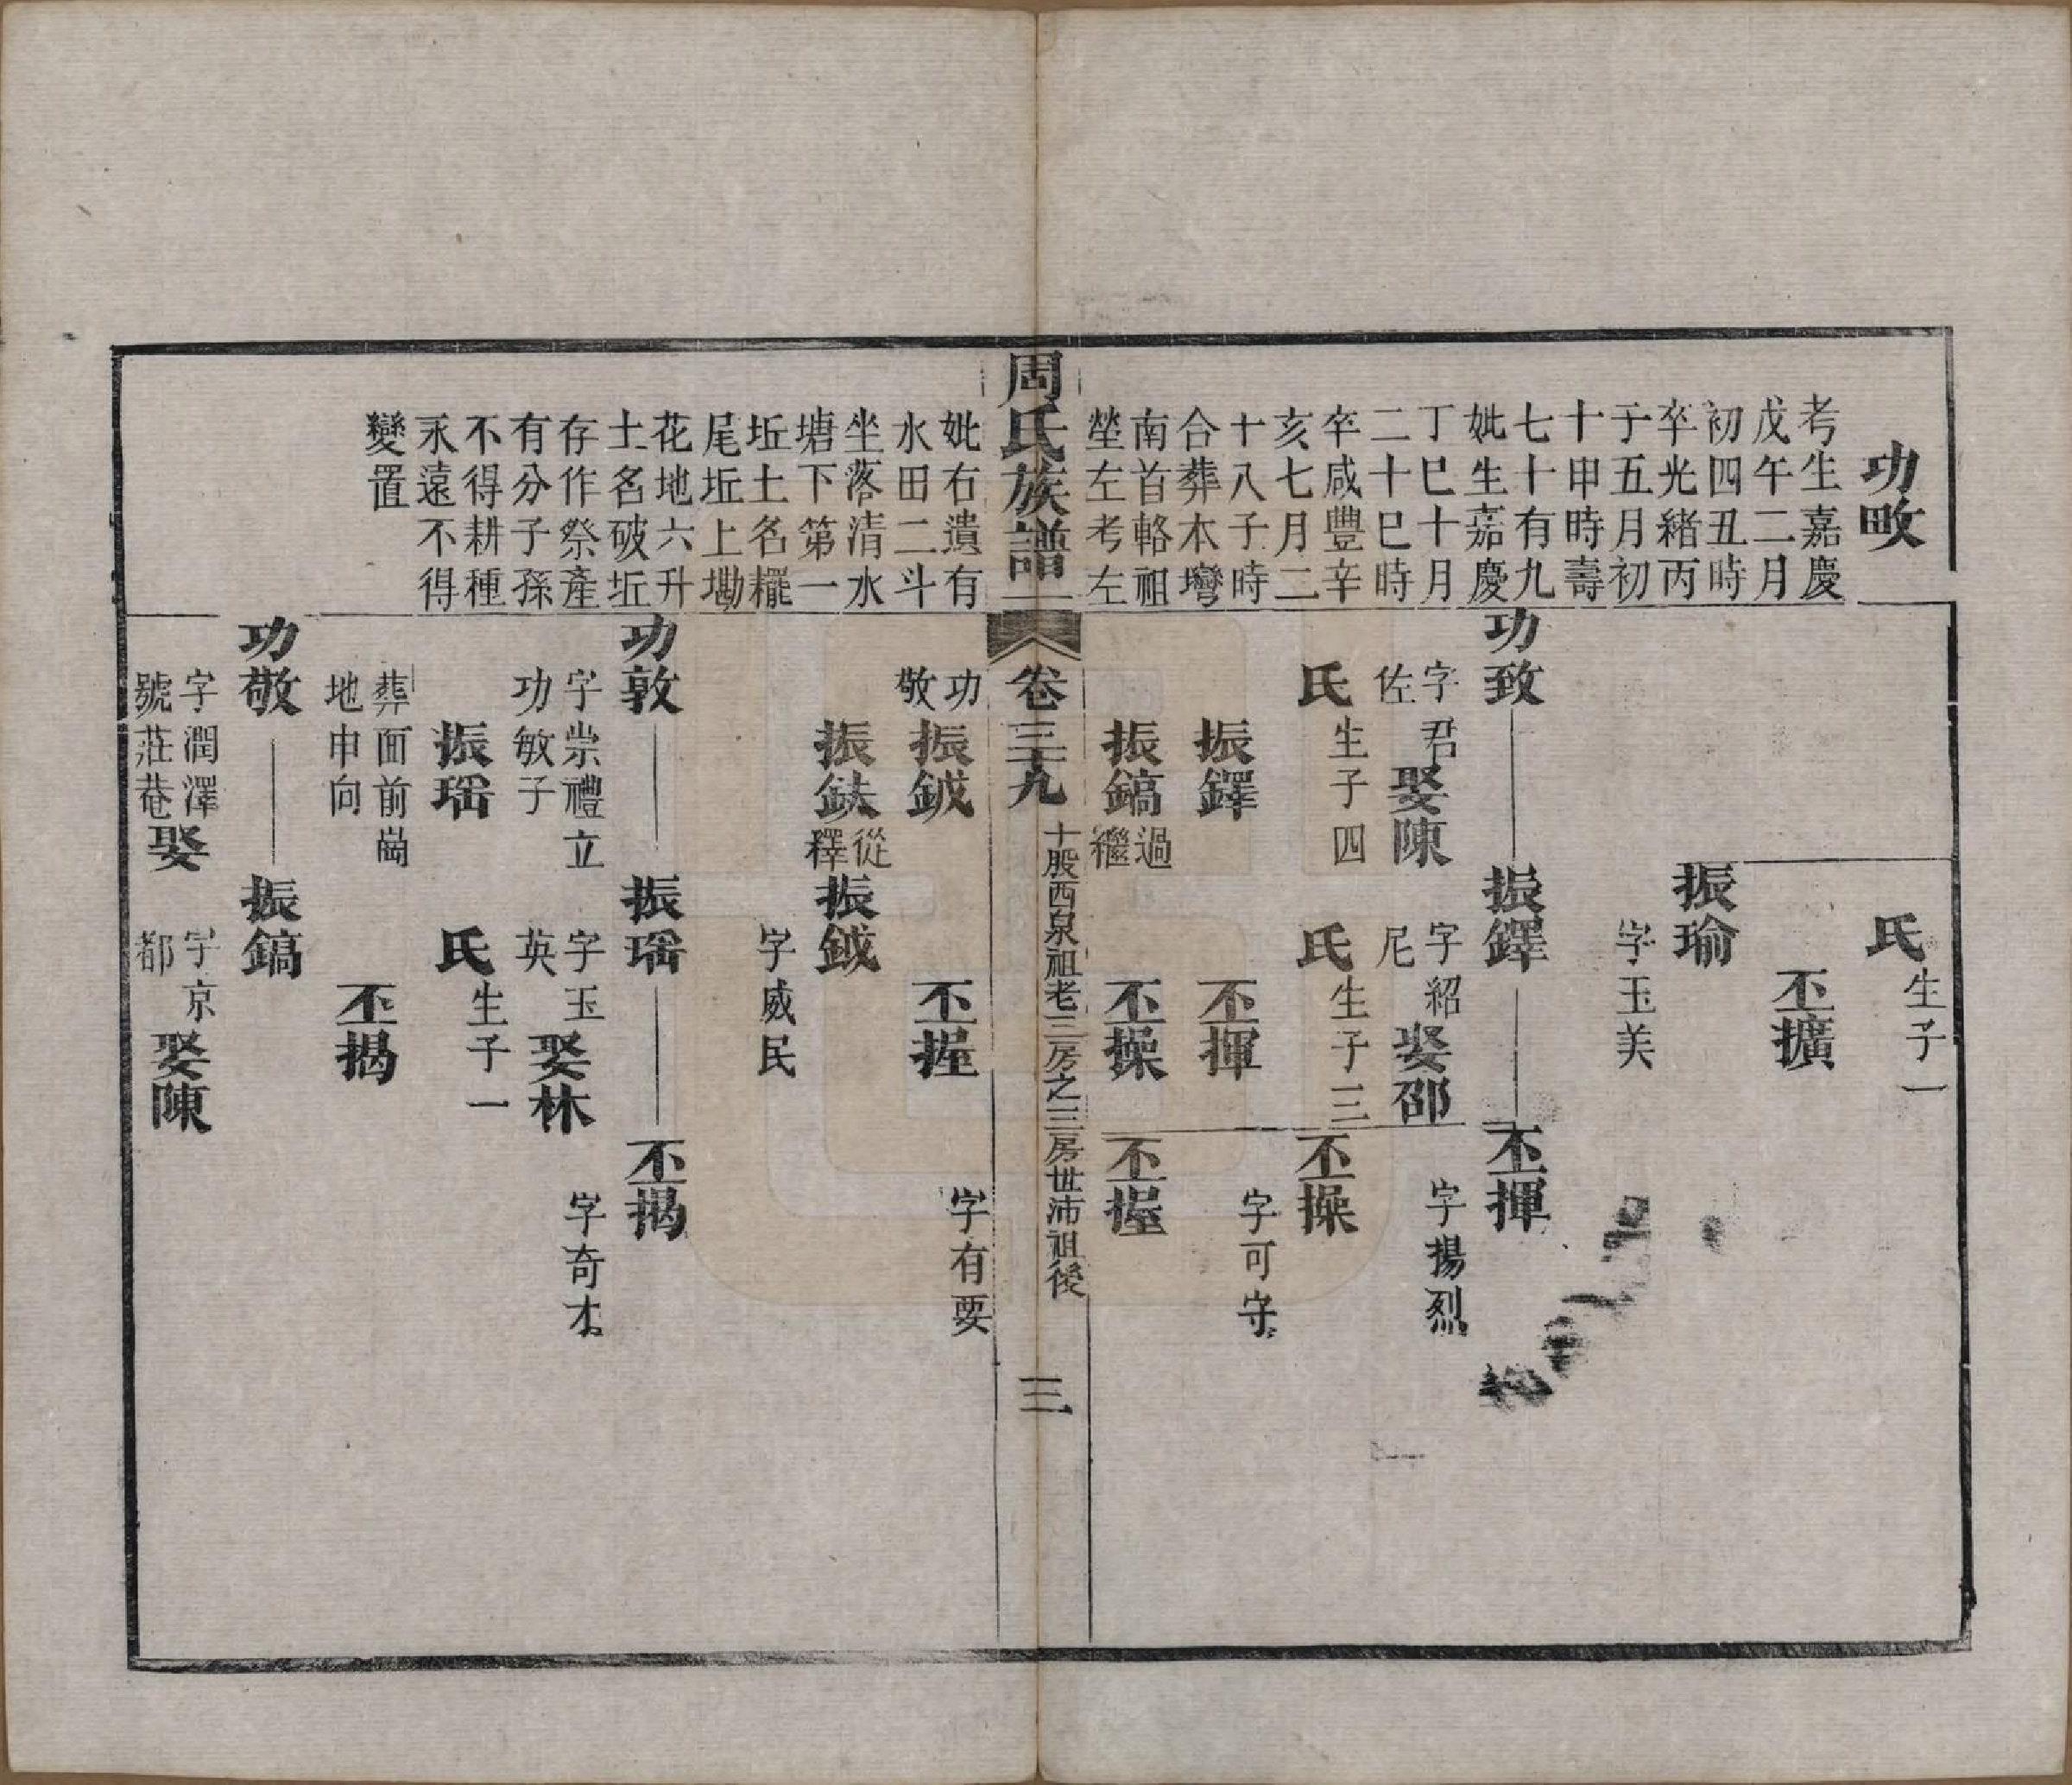 功畋
考生嘉慶
戊午二月
初四丑時
卒光緒丙
子五月初
十申時壽
七十有九
妣生嘉慶
丁巳十月
二十巳時
卒咸豐辛
亥七月二
十八子時
合葬木灣
南首輅祖
塋左考左
氏生子一
丕擴
振瑜
字玉美
功致
振鐸
丕揮
字君佐
娶陳
氏生子四
字紹尼
娶邵
氏生子三
字揚烈
丕操
振鐸
丕揮
字可守
振鎬過繼
丕操
丕握
周氏族譜
卷三十九
十股西泉祖老三房之三房世沛祖後
三
妣右遺有
水田二斗
坐落清水
塘下第一
坵土名糶
尾坵上墈
花地六升
土名破坵
存作祭產
有分子孫
不得耕種
永遠不得
變置
功敬
振鉞
丕握
字有要
振鈇從釋
振鉞
字威民
功敦
振瑶
丕揭
字崇禮立
功敏子
字玉英
娶林
字奇才
振瑶
氏生子一
葬面前崗
地申向
丕揭
功敬
振鎬
字潤澤
號莊菴
娶
字京都
娶陳